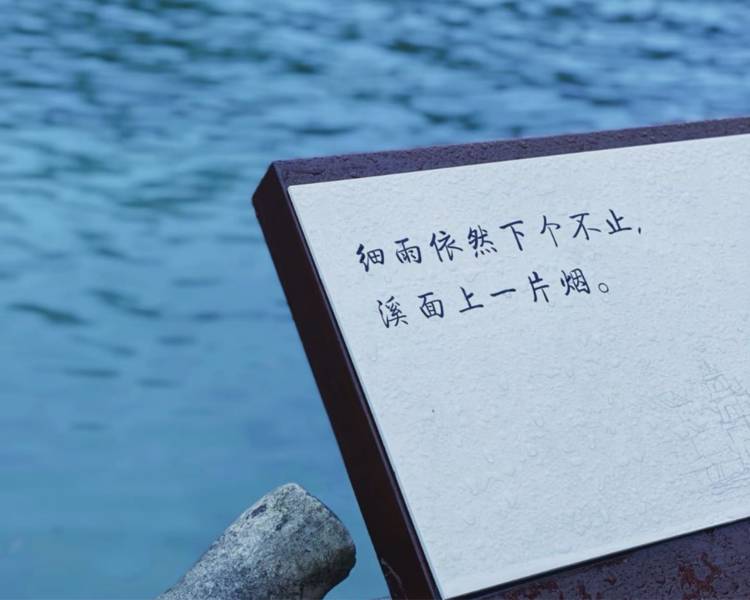 细雨依然下个不止，
溪面上一片烟。